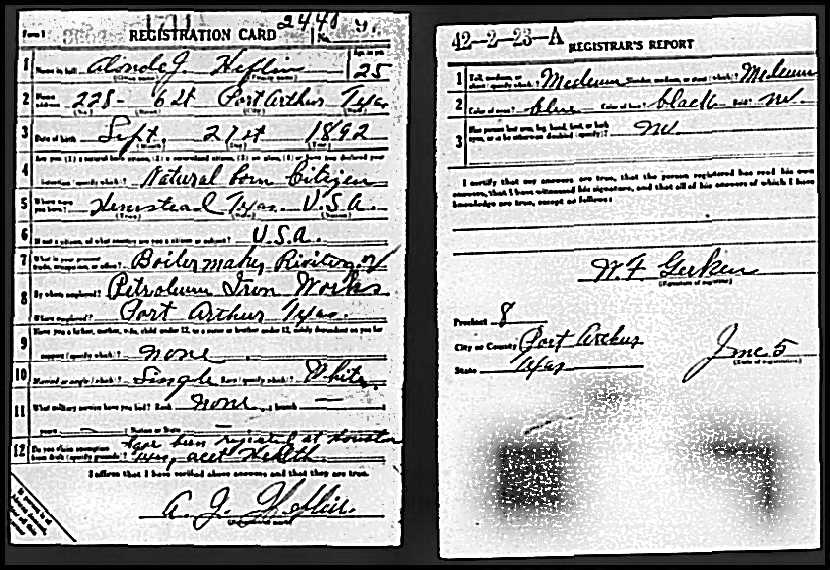 Form 1 REGISTRATION CARD 2448 No.
1 Name in full Alonde J. Heflin 25
(Given name) (Family name) Age, in yrs.
2 Home address 228- 6 St Port Arthur Texas
(No.) (Street) (City) (State)
3 Date of birth Sept. 21st 1892
(Month) (Day) (Year)
4 Are you (1) a natural born citizen, (2) a naturalized citizen, (3) an alien, (4) or have you declared your
intention (specify which)? Natural born Citizen
5 Where were you born? Hemstead Texas U.S.A.
(Town) (State) (Nation)
6 If not a citizen, of what country are you a citizen or subject? U.S.A.
7 What is your present trade, occupation, or office? Boilermaker,
8 By whom employed? Petroleum Iron Works
Where employed? Port Arthur Texas.
9 Have you a father, mother, wife, child under 12, or a sister or brother under 12, solely dependent on you for
support (specify which)? none
10 Married or single (which)? Single Race (specify which)? White
11 What military service have you had? Rank none ; branch —
years — ; Nation or State —
12 Do you claim exemption have been registered at Houston
from draft (specify grounds)? Texas, acct Health.
I affirm that I have verified above answers and that they are true.
A. J. Heflin.
42-2-23-A REGISTRAR'S REPORT
1 Tall, medium, or short (specify which)? Medium Slender, medium, or stout (which)? Medium
2 Color of eyes? blue Color of hair? black Bald? no
3 Has person lost arm, leg, hand, foot, or both
eyes, or is he otherwise disabled (specify)? no
I certify that my answers are true, that the person registered has read his own
answers, that I have witnessed his signature, and that all of his answers of which I have
knowledge are true, except as follows:
W. F. Gerken
(Signature of registrar)
Precinct 8
City or County Port Arthur
State Texas
June 5
(Date of registration)